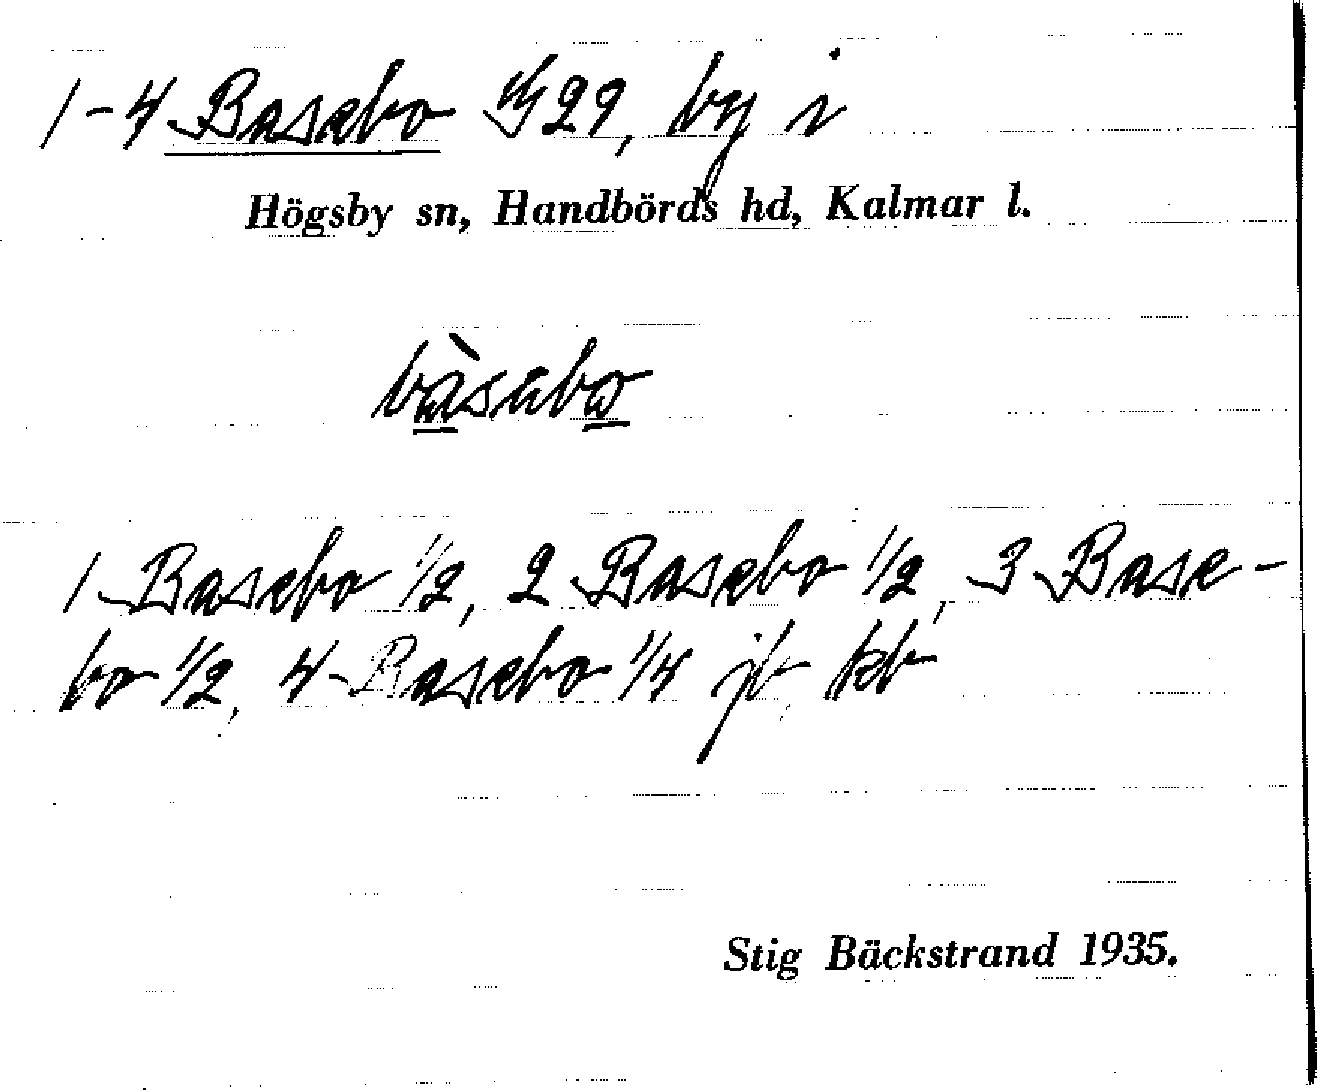 1-4 Basebo 29, by i
Högsby sn, Handbörds hd, Kalmar l.
bàsabo
1 Basebo 1/2, 2 Basebo 1/2, 3 Base-
bo 1/2, 4 Basebo 1/4 jb, kb
Stig Bäckstrand 1935.